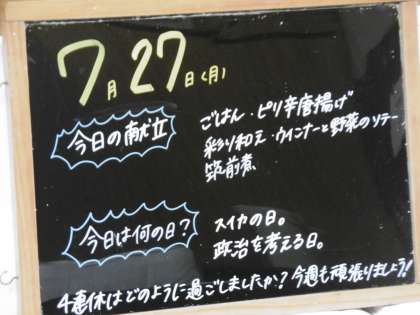 7月27日(月)
今日の献立
ごはん・ピリ辛唐揚げ
彩り和え・ウインナーと野菜のソテー
筑前煮
今日は何の日?
スイカの日。
政治を考える日。
4連休はどのように過ごしましたか?今週も頑張りましょう!